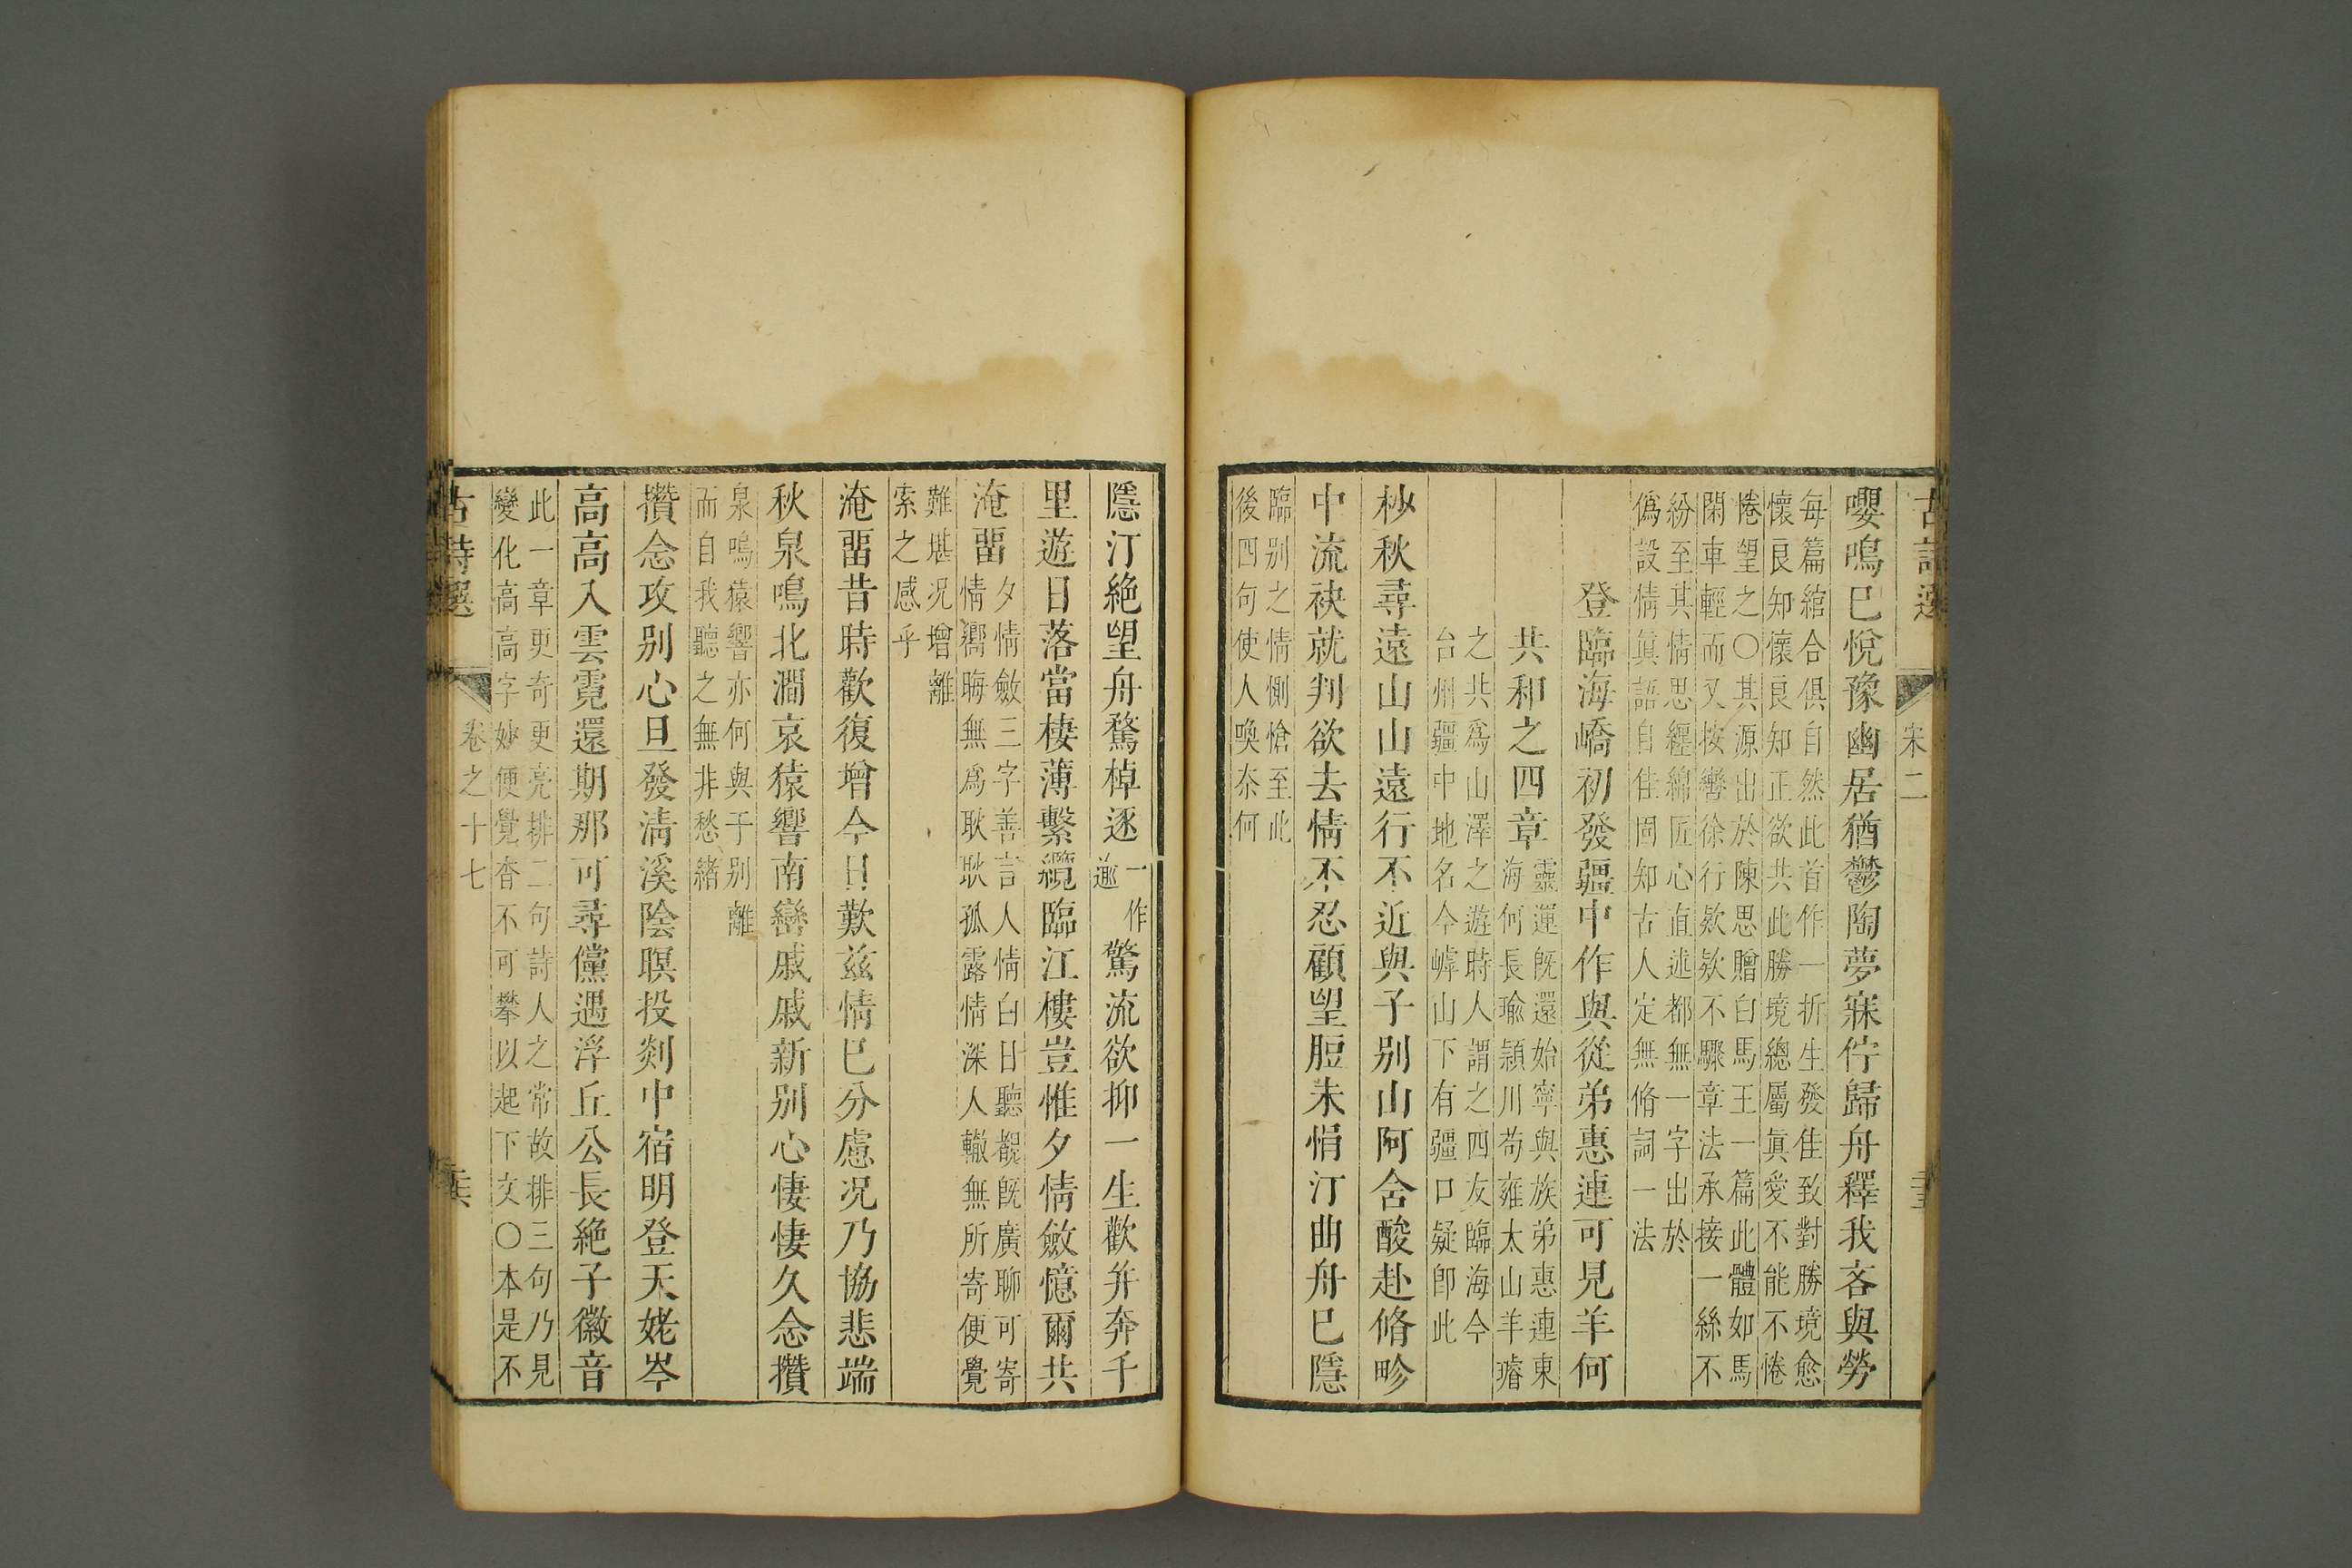 古詩選 宋二
嚶鳴已悅豫幽居猶鬱陶夢寐佇歸舟釋我吝與勞
每篇綰合俱自然此首作一折生發佳致對勝境愈
懷良知懷良知正欲共此勝境總屬眞愛不能不惓
惓望之〇其源出於陳思贈白馬王一篇此體如馬
閑車輕而又按轡徐行欵欵不驟章法承接一絲不
紛至其情思纒綿匠心直述都無一字出於
偽設情眞語自佳固知古人定無脩詞一法
登臨海嶠初發疆中作與從弟惠連可見羊何
共和之四章
靈運既還始寧與族弟惠連東
海何長瑜潁川荀雍太山羊璿
之共爲山澤之遊時人謂之四友臨海今
台州疆中地名今嵊山下有疆口疑卽此
杪秋尋遠山山遠行不近與子别山阿含酸赴脩畛
中流袂就判欲去情不忍顧望脰未悁汀曲舟已隱
臨别之情惻愴至此
後四句使人喚柰何
隱汀絶望舟騖棹逐
一作
遄
驚流欲抑一生歡并奔千
里遊日落當棲薄繫纜臨江樓豈惟夕情斂憶爾共
淹畱
夕情斂三字善言人情白日聽覩旣廣聊可寄
情嚮晦無爲耿耿孤露情深人轍無所寄便覺
難堪况增離
索之感乎
淹畱昔時歡復增今日歎茲情已分慮况乃協悲端
秋泉鳴北澗哀猿響南巒戚戚新别心悽悽久念攢
泉鳴猿響亦何與于别離
而自我聽之無非愁緒
攢念攻别心旦發淸溪陰暝投剡中宿明登天姥岑
高高入雲霓還期那可尋儻遇浮丘公長絶子徽音
此一章更奇更亮排二句詩人之常故排三句乃見
變化高高字妙便覺杳不可攀以起下文〇本是不
古詩選 卷之十七